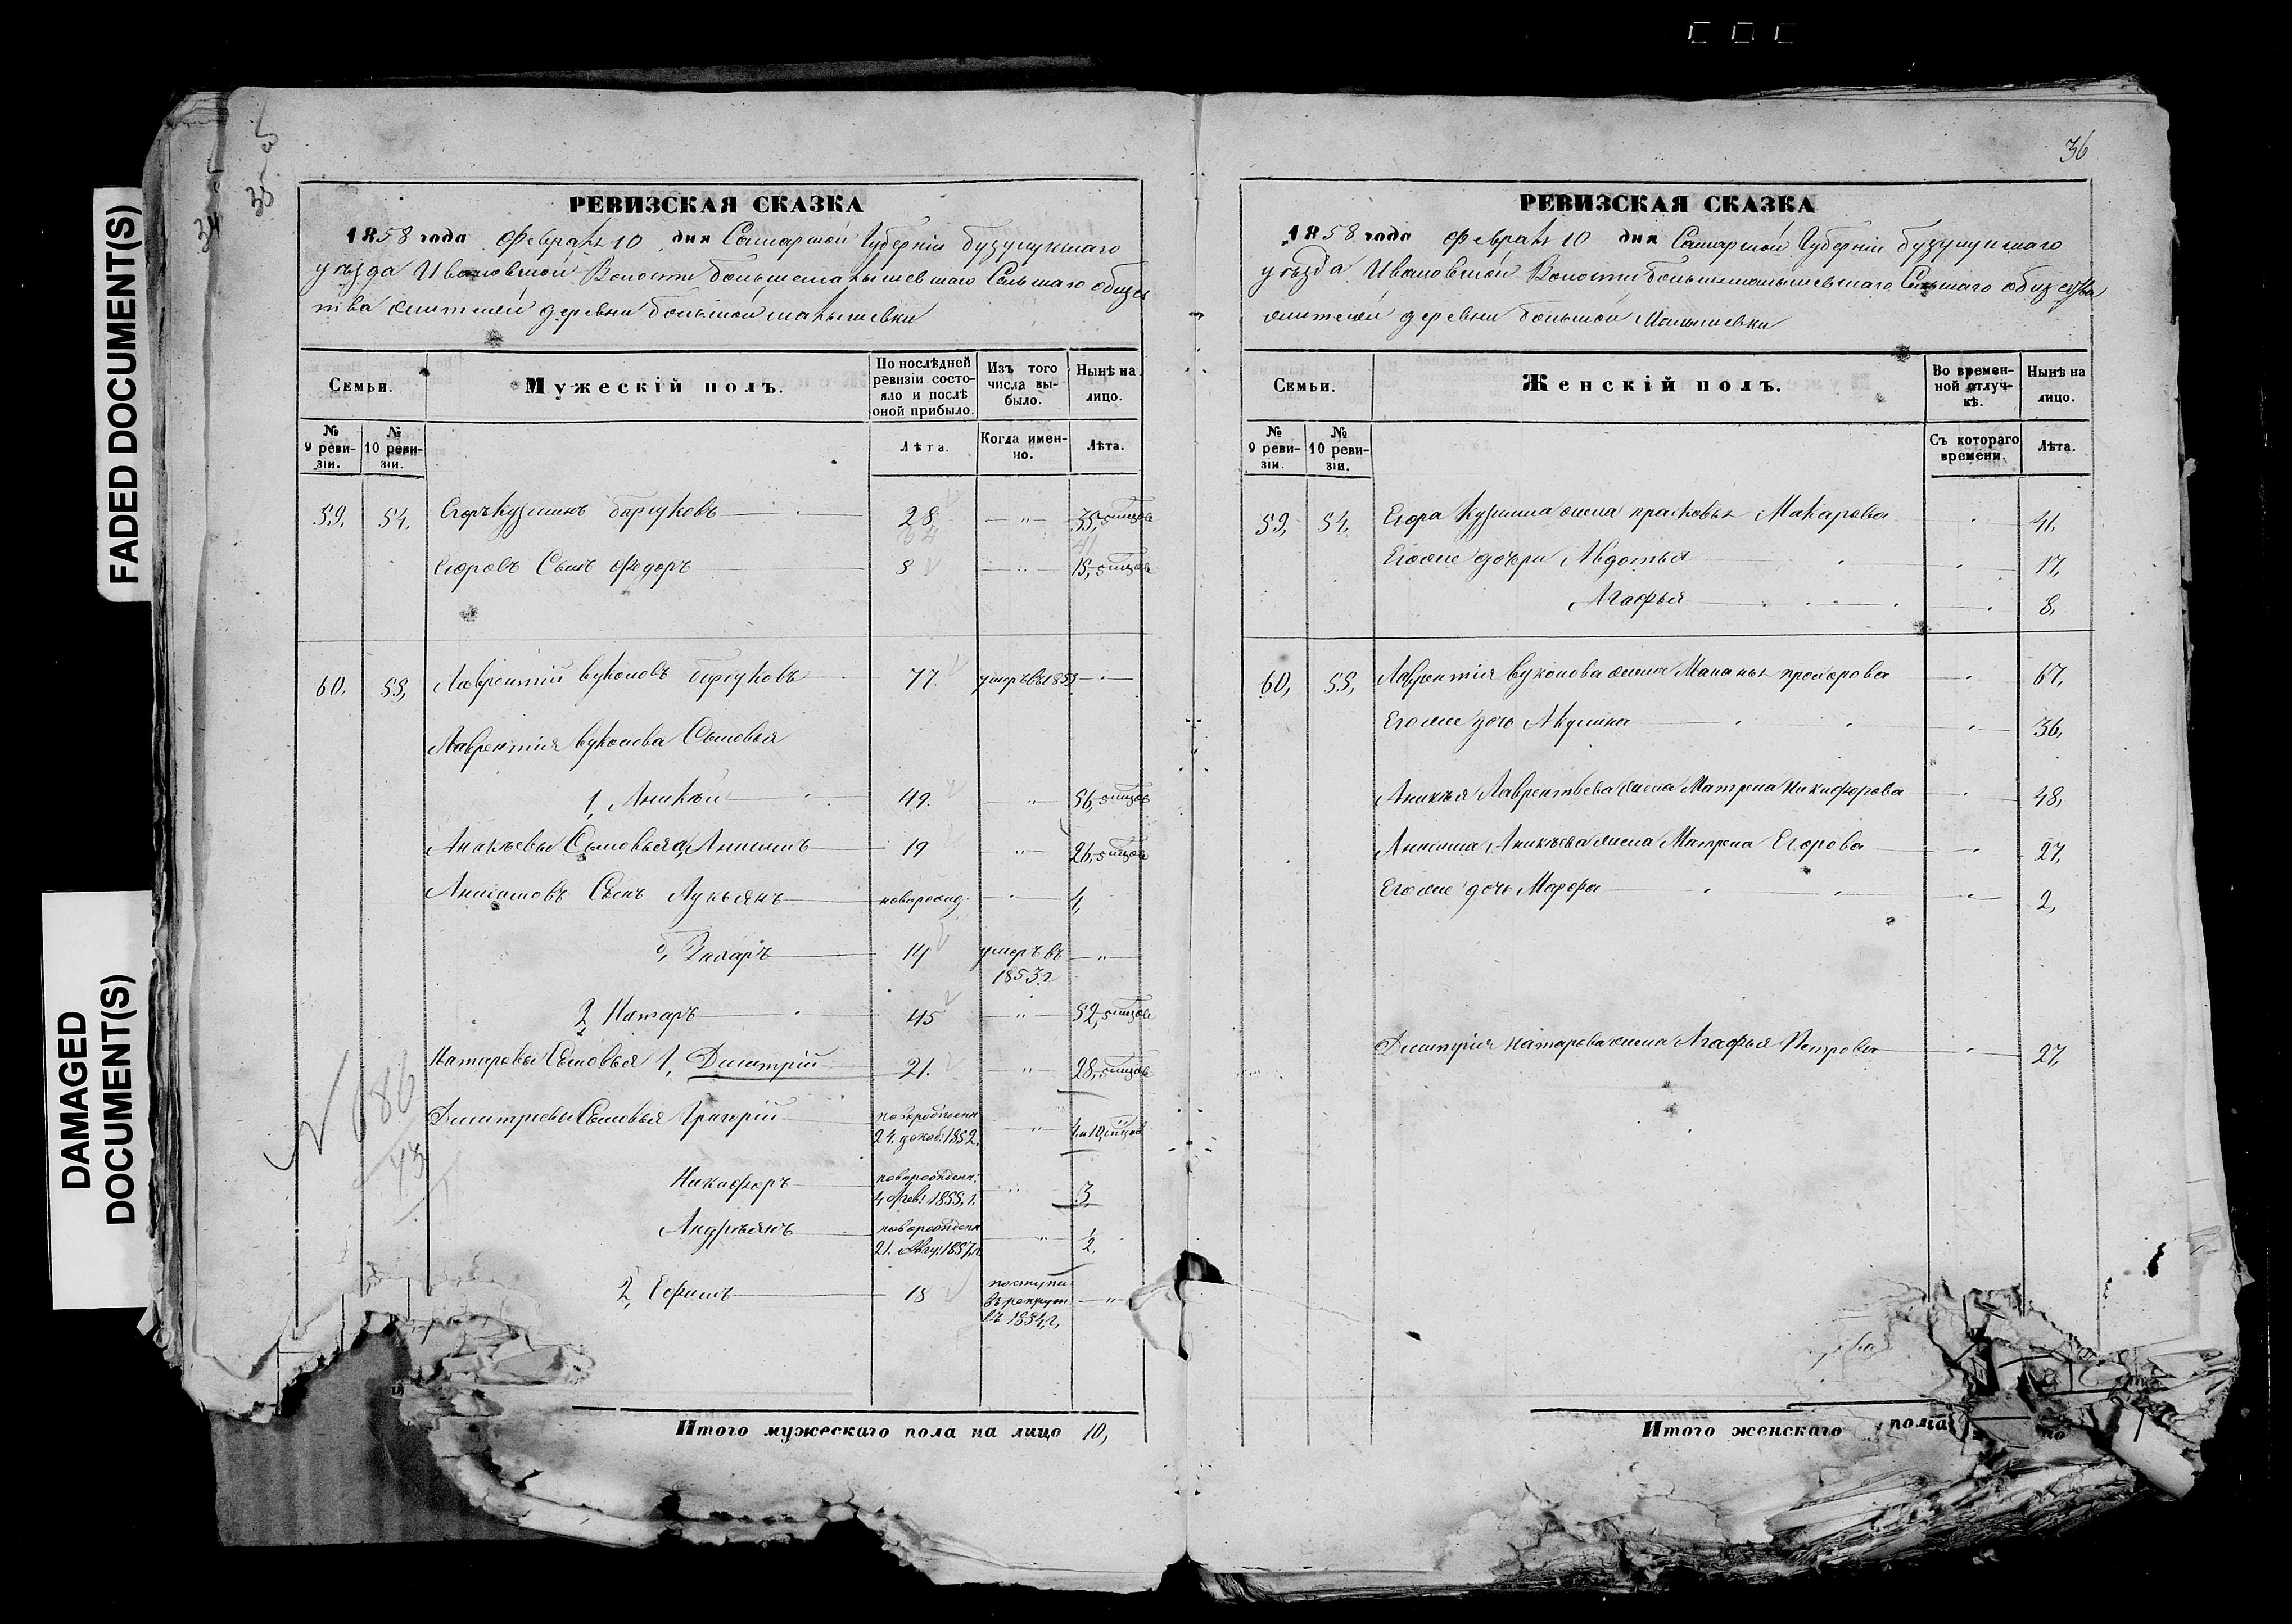 FADED DOCUMENT(S)
DAMAGED
DOCUMENT(S)
34
35
РЕВИЗСКАЯ СКАЗКА
1858 года Февраля 10 дня Самарской Губерніи Бузулукскаго
уѣзда Ивановской Волости Большемалышевскаго Сельскаго общес
тва жителей деревни Большой Малышевки
Семьи.
Мужескій полъ.
По послѣдней ревизіи состояло и послѣ оной прибыло.
Изъ того числа выбыло.
Нынѣ на лицо.
№ 9 ревизіи.
№ 10 ревизіи.
Лѣта.
Когда именно.
Лѣта.
59, 54. Егоръ Кузминъ 28 — " — 35,
Егоровъ Сынъ Федоръ 8 — " — 15,
60. 55, Лаврентій Вуколовъ 77. умеръ въ 1855 — " —
Лаврентія Вуколова Сыновья
1, Аникѣй 49. — " — 56,
Аникѣевы Сыновья а, Анисимъ 19 — " — 26,
Анисимовъ Сынъ Лукьянъ новорожд. — " — 4,
б, Захаръ 14 умеръ въ 1853 г — " —
2, Натаръ 45 — " — 52,
Натаровы Сыновья 1, Дмитрій 21. — " — 28,
Дмитріевы Сыновья Григорій новорожден 24. декаб. 1852. — " —
Никифоръ новорожден. 4 Фев. 1855, г. — " — 3
Андрѣянъ новорожден 21. Авгу. 1857, г. — " — 1/2.
2, Ефимъ 18 поступи. въ рекрут. въ 1854, г, — " —
186
43
Итого мужескаго пола на лицо 10,
36
РЕВИЗСКАЯ СКАЗКА
1858 года Февраля 10 дня Самарской Губерніи Бузулукскаго
уѣзда Ивановской Волости Большемалышевскаго Сельскаго общества
жителей деревни Большой Малышевки
Семьи.
Женскій полъ.
Во временной отлучкѣ.
Нынѣ на лицо.
№ 9 ревизіи.
№ 10 ревизіи.
Съ котораго времени.
Лѣта.
59, 54, Егора Кузмина жена Прасковья Макарова — " — 41,
Его же дочери Авдотья — " — 17,
Агафья — " — 8,
60, 55, Лаврентія Вуколова жена Маланья Прохорова — " — 67,
Его же дочь Акулина — " — 36,
Аникѣя Лаврентьева жена Матрена Никифорова — " — 48,
Анисима Аникѣева жена Матрена Егорова — " — 27,
Его же дочь Марфа — " — 2,
Дмитрія Натарова жена Агафья Петрова — " — 27,
Итого женскаго пола